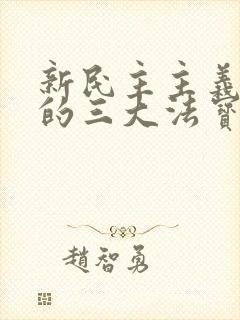 新民主主義
的三大法寶
趙智勇